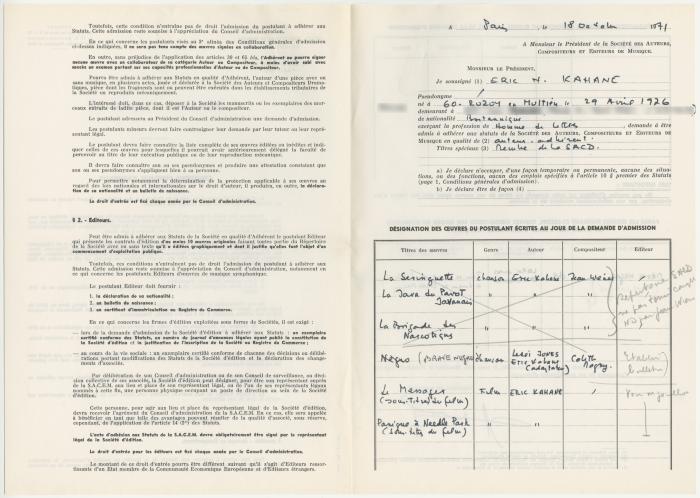 Toutefois, cette condition n'entraîne pas de droit l'admission du postulant à adhérer aux
Statuts. Cette admission reste soumise à l'appréciation du Conseil d'administration.
En ce qui concerne les postulants visés au 3e alinéa des Conditions générales d'admission
ci-dessus indiquées, il ne sera pas tenu compte des œuvres signées en collaboration.
En outre, sans préjudice de l'application des articles 20 et 61 bis, l'Adhérent ne pourra signer
aucune œuvre avec un collaborateur de sa catégorie Auteur ou Compositeur, à moins d'avoir subi avec
succès un examen portant sur ses capacités professionnelles d'Auteur ou de Compositeur.
Pourra être admis à adhérer aux Statuts en qualité d'Adhérent, l'auteur d'une pièce avec ou
sans musique, en plusieurs actes, jouée et déclarée à la Société des Auteurs et Compositeurs Drama-
tiques, pièce dont les fragments sont ou peuvent être exécutés dans les établissements tributaires de la
Société ou reproduits mécaniquement.
L'intéressé doit, dans ce cas, déposer à la Société les manuscrits ou les exemplaires des mor-
ceaux extraits de ladite pièce, dont il est l'Auteur ou le compositeur.
Le postulant adressera au Président du Conseil d'administration une demande d'admission.
Les postulants mineurs devront faire contresigner leur demande par leur tuteur ou leur représentant
légal.
Le postulant devra faire connaître la liste complète de ses œuvres éditées ou inédites et indi-
quer celles de ces œuvres pour lesquelles il pourrait avoir antérieurement délégué la faculté de
percevoir au titre de leur exécution publique ou de leur reproduction mécanique.
Il devra faire connaître son ou ses pseudonymes et produire une attestation constatant que
son ou ses pseudonymes s'appliquent bien à sa personne.
Pour permettre notamment la détermination de la protection applicable à ses œuvres au
regard des lois nationales et internationales sur le droit d'auteur, il produira, en outre, la déclara-
tion de sa nationalité et un bulletin de naissance.
Le droit d'entrée est fixé chaque année par le Conseil d'administration.
§ 2. - Editeurs.
Peut être admis à adhérer aux Statuts de la Société en qualité d'Adhérent le postulant Editeur
qui présente les contrats d'édition d'au moins 10 œuvres originales faisant toutes partie du Répertoire
de la Société avec ou sans texte qu'il a éditées graphiquement et dont il justifie qu'elles font l'objet d'un
commencement d'exploitation publique.
Toutefois, ces conditions n'entraînent pas de droit l'admission du postulant à adhérer aux
Statuts. Cette admission reste soumise à l'appréciation du Conseil d'administration, notamment en
ce qui concerne les postulants Editeurs d'œuvres de musique symphonique.
Le postulant Editeur doit fournir :
1. la déclaration de sa nationalité ;
2. un bulletin de naissance ;
3. un certificat d'immatriculation au Registre du Commerce.
En ce qui concerne les firmes d'édition exploitées sous forme de Sociétés, il est exigé :
— lors de la demande d'admission de la Société d'édition à adhérer aux Statuts : un exemplaire
certifié conforme des Statuts, un numéro du journal d'annonces légales ayant publié la constitution de
la Société d'édition et la justification de l'inscription de la Société au Registre du Commerce ;
— au cours de la vie sociale : un exemplaire certifié conforme de chacune des décisions ou délibé-
rations portant modifications des Statuts de la Société d'édition et la déclaration des change-
ments d'associés.
Par délibération de son Conseil d'administration ou de son Conseil de surveillance, ou déci-
sion collective de ses associés, la Société d'édition peut désigner, pour être son représentant auprès
de la S.A.C.E.M. aux lieu et place de son représentant légal, ou de l'un de ses représentants légaux
nommés à cette fin, une personne physique occupant un poste de direction au sein de la Société
d'édition.
Cette personne, pour agir aux lieu et place du représentant légal de la Société d'édition,
devra recevoir l'agrément du Conseil d'administration de la S.A.C.E.M. En ce cas, elle sera appelée
à bénéficier en tant que telle des avantages pouvant résulter de la qualité d'associé, sous réserve,
cependant, de l'application de l'article 14 (5°) des Statuts.
L'acte d'adhésion aux Statuts de la S.A.C.E.M. devra obligatoirement être signé par le représentant
légal de la Société d'édition.
Le droit d'entrée pour les éditeurs est fixé chaque année par le Conseil d'administration.
Le montant de ce droit d'entrée pourra être différent suivant qu'il s'agit d'Editeurs ressor-
tissants d'un Etat membre de la Communauté Economique Européenne et d'Editeurs étrangers.
A Paris le 18 Octobre 1971
A Monsieur le Président de la SOCIÉTÉ DES AUTEURS,
COMPOSITEURS ET EDITEURS DE MUSIQUE.
MONSIEUR LE PRÉSIDENT,
Je soussigné (1) ERIC N. KAHANE
Pseudonyme
né à 60. ROZOY en Multien le 29 Avril 1926
demeurant à
de nationalité Britannique
exerçant la profession de Homme de Lettres, demande à être
admis à adhérer aux statuts de la SOCIÉTÉ DES AUTEURS, COMPOSITEURS ET EDITEURS DE
MUSIQUE en qualité de (2) auteur adhérent.
Titres spéciaux (3) Membre de la SACD.
a) Je déclare n'occuper, d'une façon temporaire ou permanente, aucune des situa-
tions, ou des fonctions, aucun des emplois spécifiés à l'article 10 § premier des Statuts
(page 1, Conditions générales d'admission).
b) Je déclare être de façon (4)
DÉSIGNATION DES ŒUVRES DU POSTULANT ÉCRITES AU JOUR DE LA DEMANDE D'ADMISSION
Titres des œuvres Genre Auteur Compositeur Editeur
La Seringuette chanson Eric Kahane Jean Wiener /
La Java du Pavot Javanais " " "
La Brigade des Narcotiques " " "
Répertoire SACD
ne pas tenir compte
Négro (BRAVE NEGRO) chanson LeRoi JONES Eric Kahane (adaptation) Colette Magny
Le Message (sous-titres du film) Film ERIC KAHANE /
Panique à Needle Park (sous-titres du film) " " /